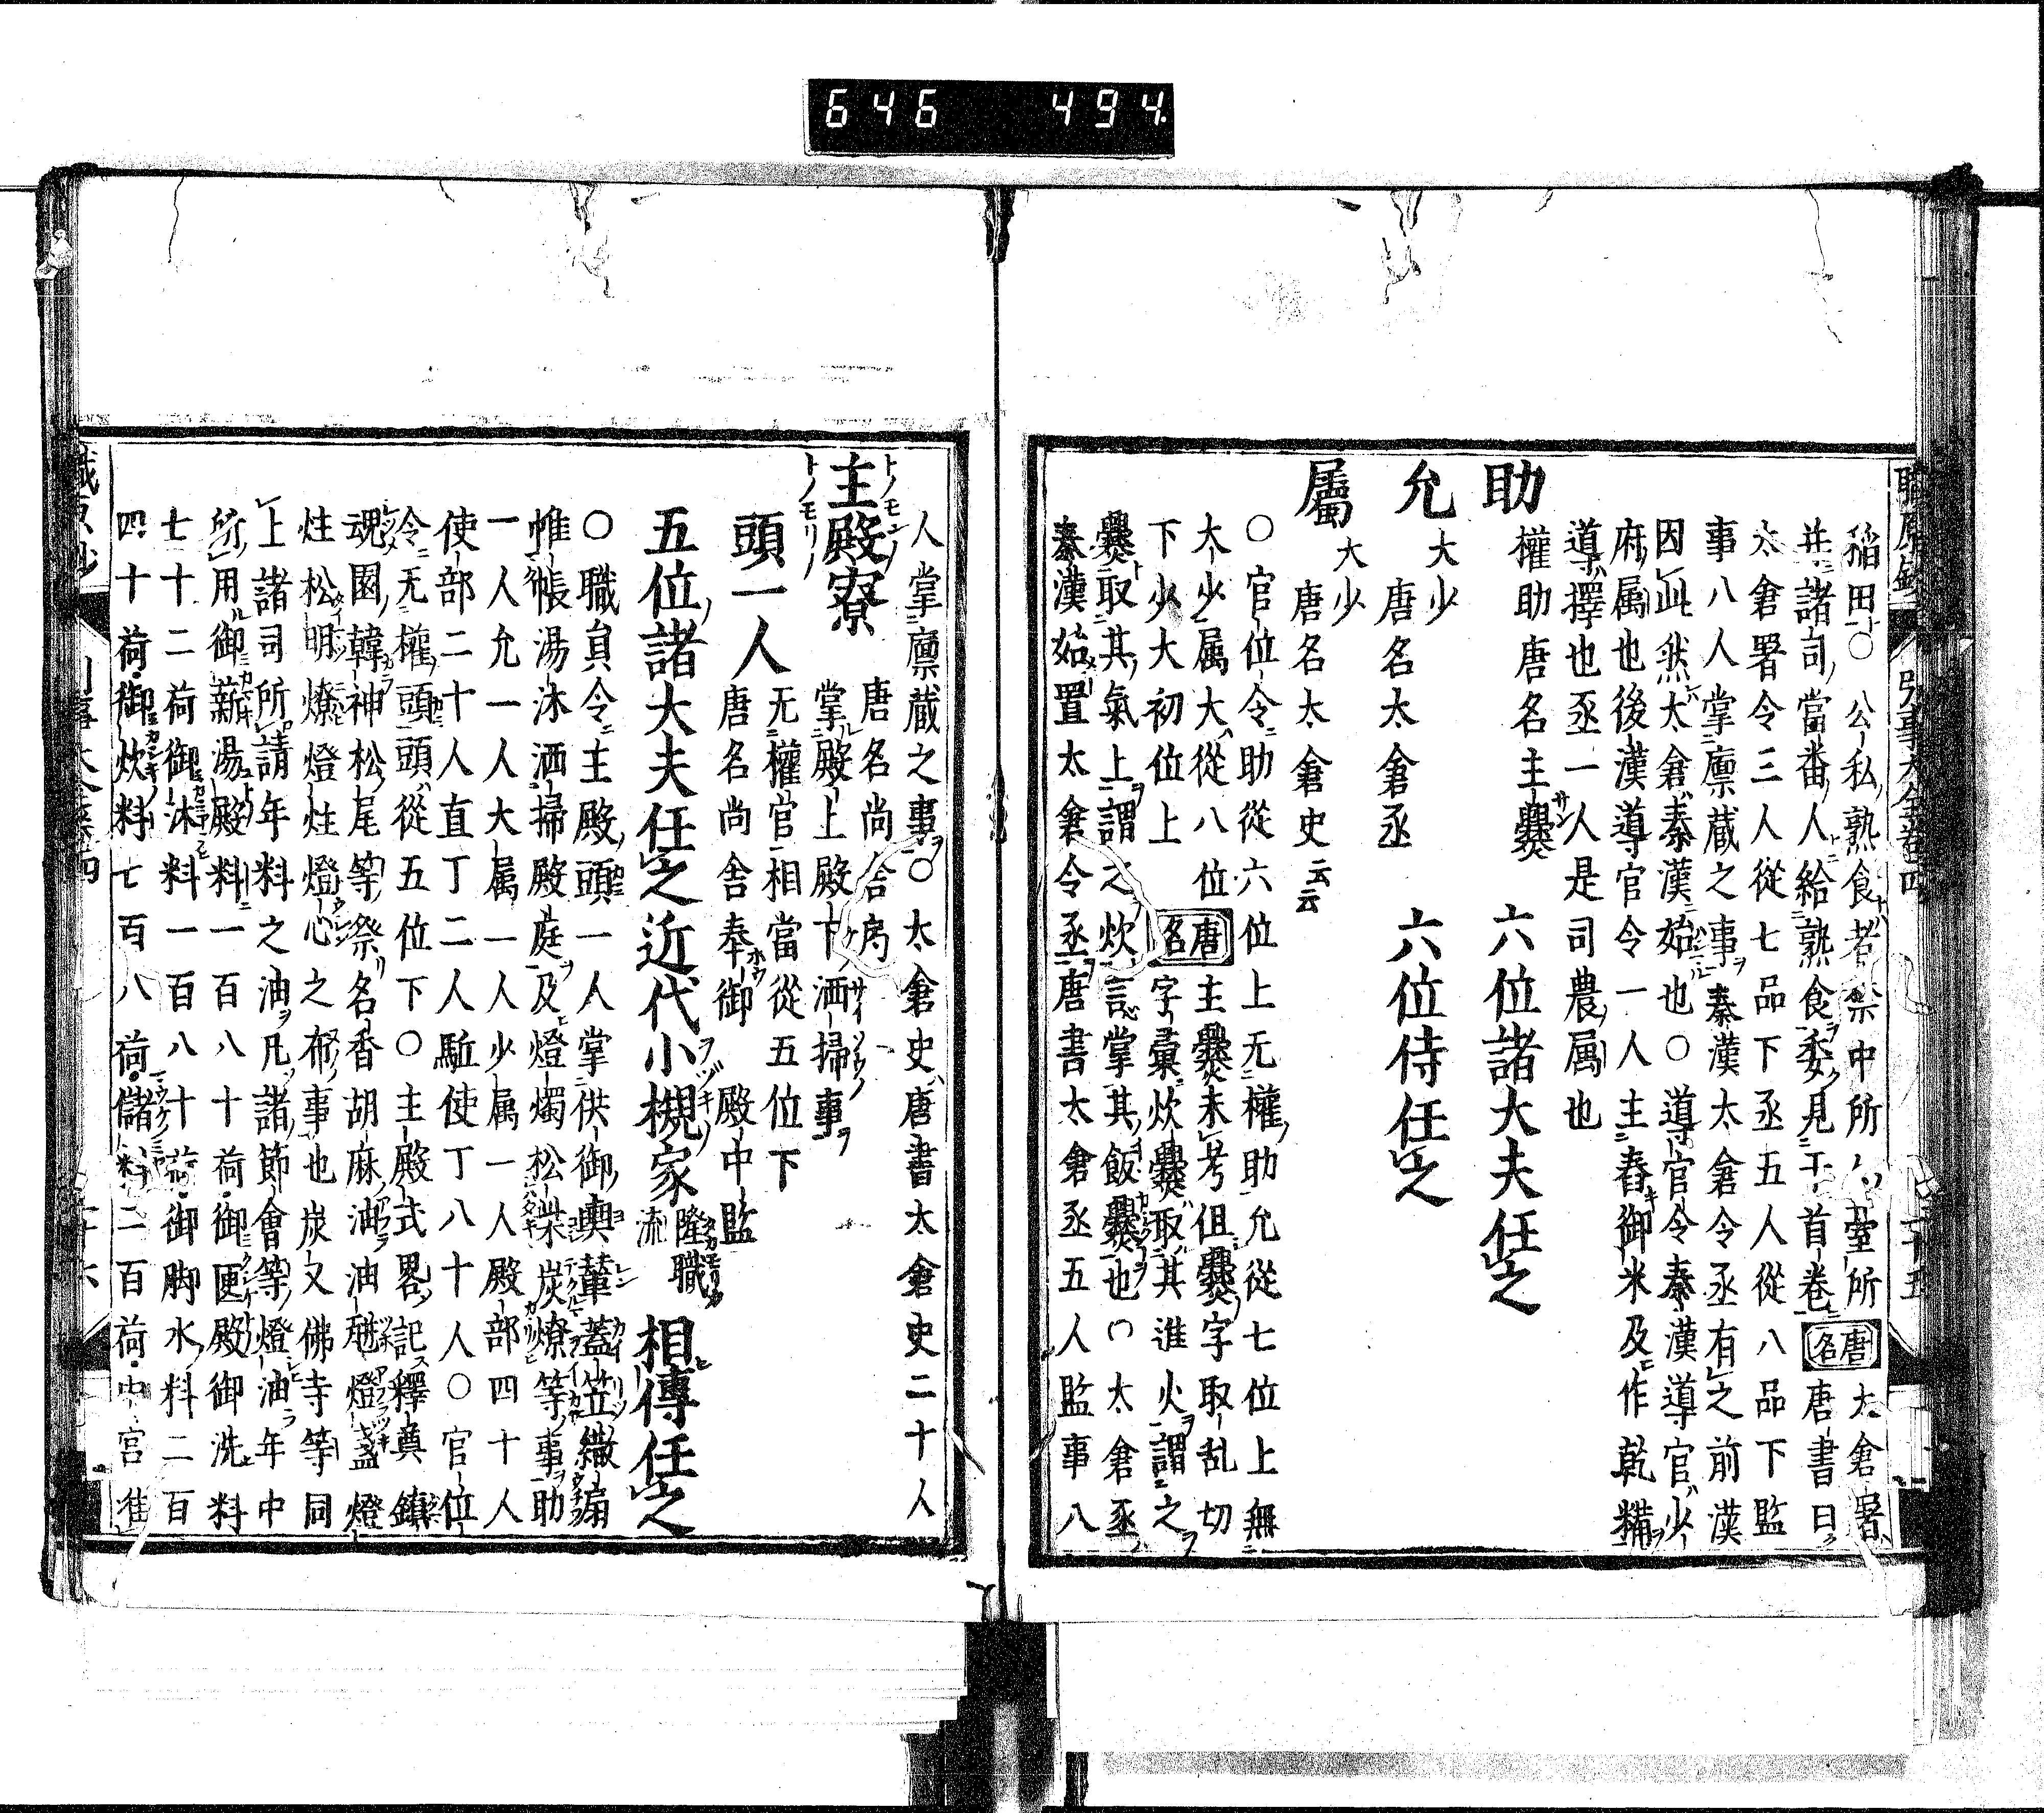 646 494.
稲田○公私熟食者祭中所 臺所
并諸司當番人給熟食委見于首卷唐名太倉署
太倉署令三人從七品下丞五人從八品下監
事八人掌廪蔵之事秦漢太倉令丞有之前漢
因此然太倉秦漢始也○導官令秦漢導官少
府属也後漢導官令一人主舂御米及作乾糒
導擇也丞一人是司農属也
助 權助唐名主爨 六位諸大夫任之
允 大少 唐名太倉丞 六位侍任之
屬 大少 唐名太倉史云云
○官位令助從六位上无權助允從七位上無
大少属大從八位唐名主爨未考俎爨字取乱切
下少大初位上 字彙炊爨取其進火謂之
爨取其氣上謂之炊言掌其飯爨也○太倉丞
秦漢始置太倉令丞唐書太倉丞五人監事八
人掌廪蔵之事○太倉史唐書太倉史二十人
主殿寮 唐名尚舎局
掌殿上殿下洒掃事
頭一人 无權官相當從五位下
唐名尚舎奉御 殿中監
五位諸大夫任之近代小槻家隆職流相傳任之
○職員令主殿頭一人掌供御輿輦蓋笠繖扇
帷帳湯沐洒掃殿庭及燈燭松柴炭燎等事助
一人允一人大属一人少属一人殿部四十人
使部二十人直丁二人駈使丁八十人○官位
令无權頭頭從五位下○主殿式畧記釋奠鎮
魂園韓神松尾等祭名香胡麻油油瓼燈盞燈
炷松明燎燈炷燈心之布事也炭又佛寺等同
上諸司所請年料之油凡諸節會等燈油年中
所用御薪湯殿料一百八十荷御匣殿御洗料
七十二荷御沐料一百八十荷御脚水料二百
四十荷御炊料七百八荷儲料二百荷中宮准